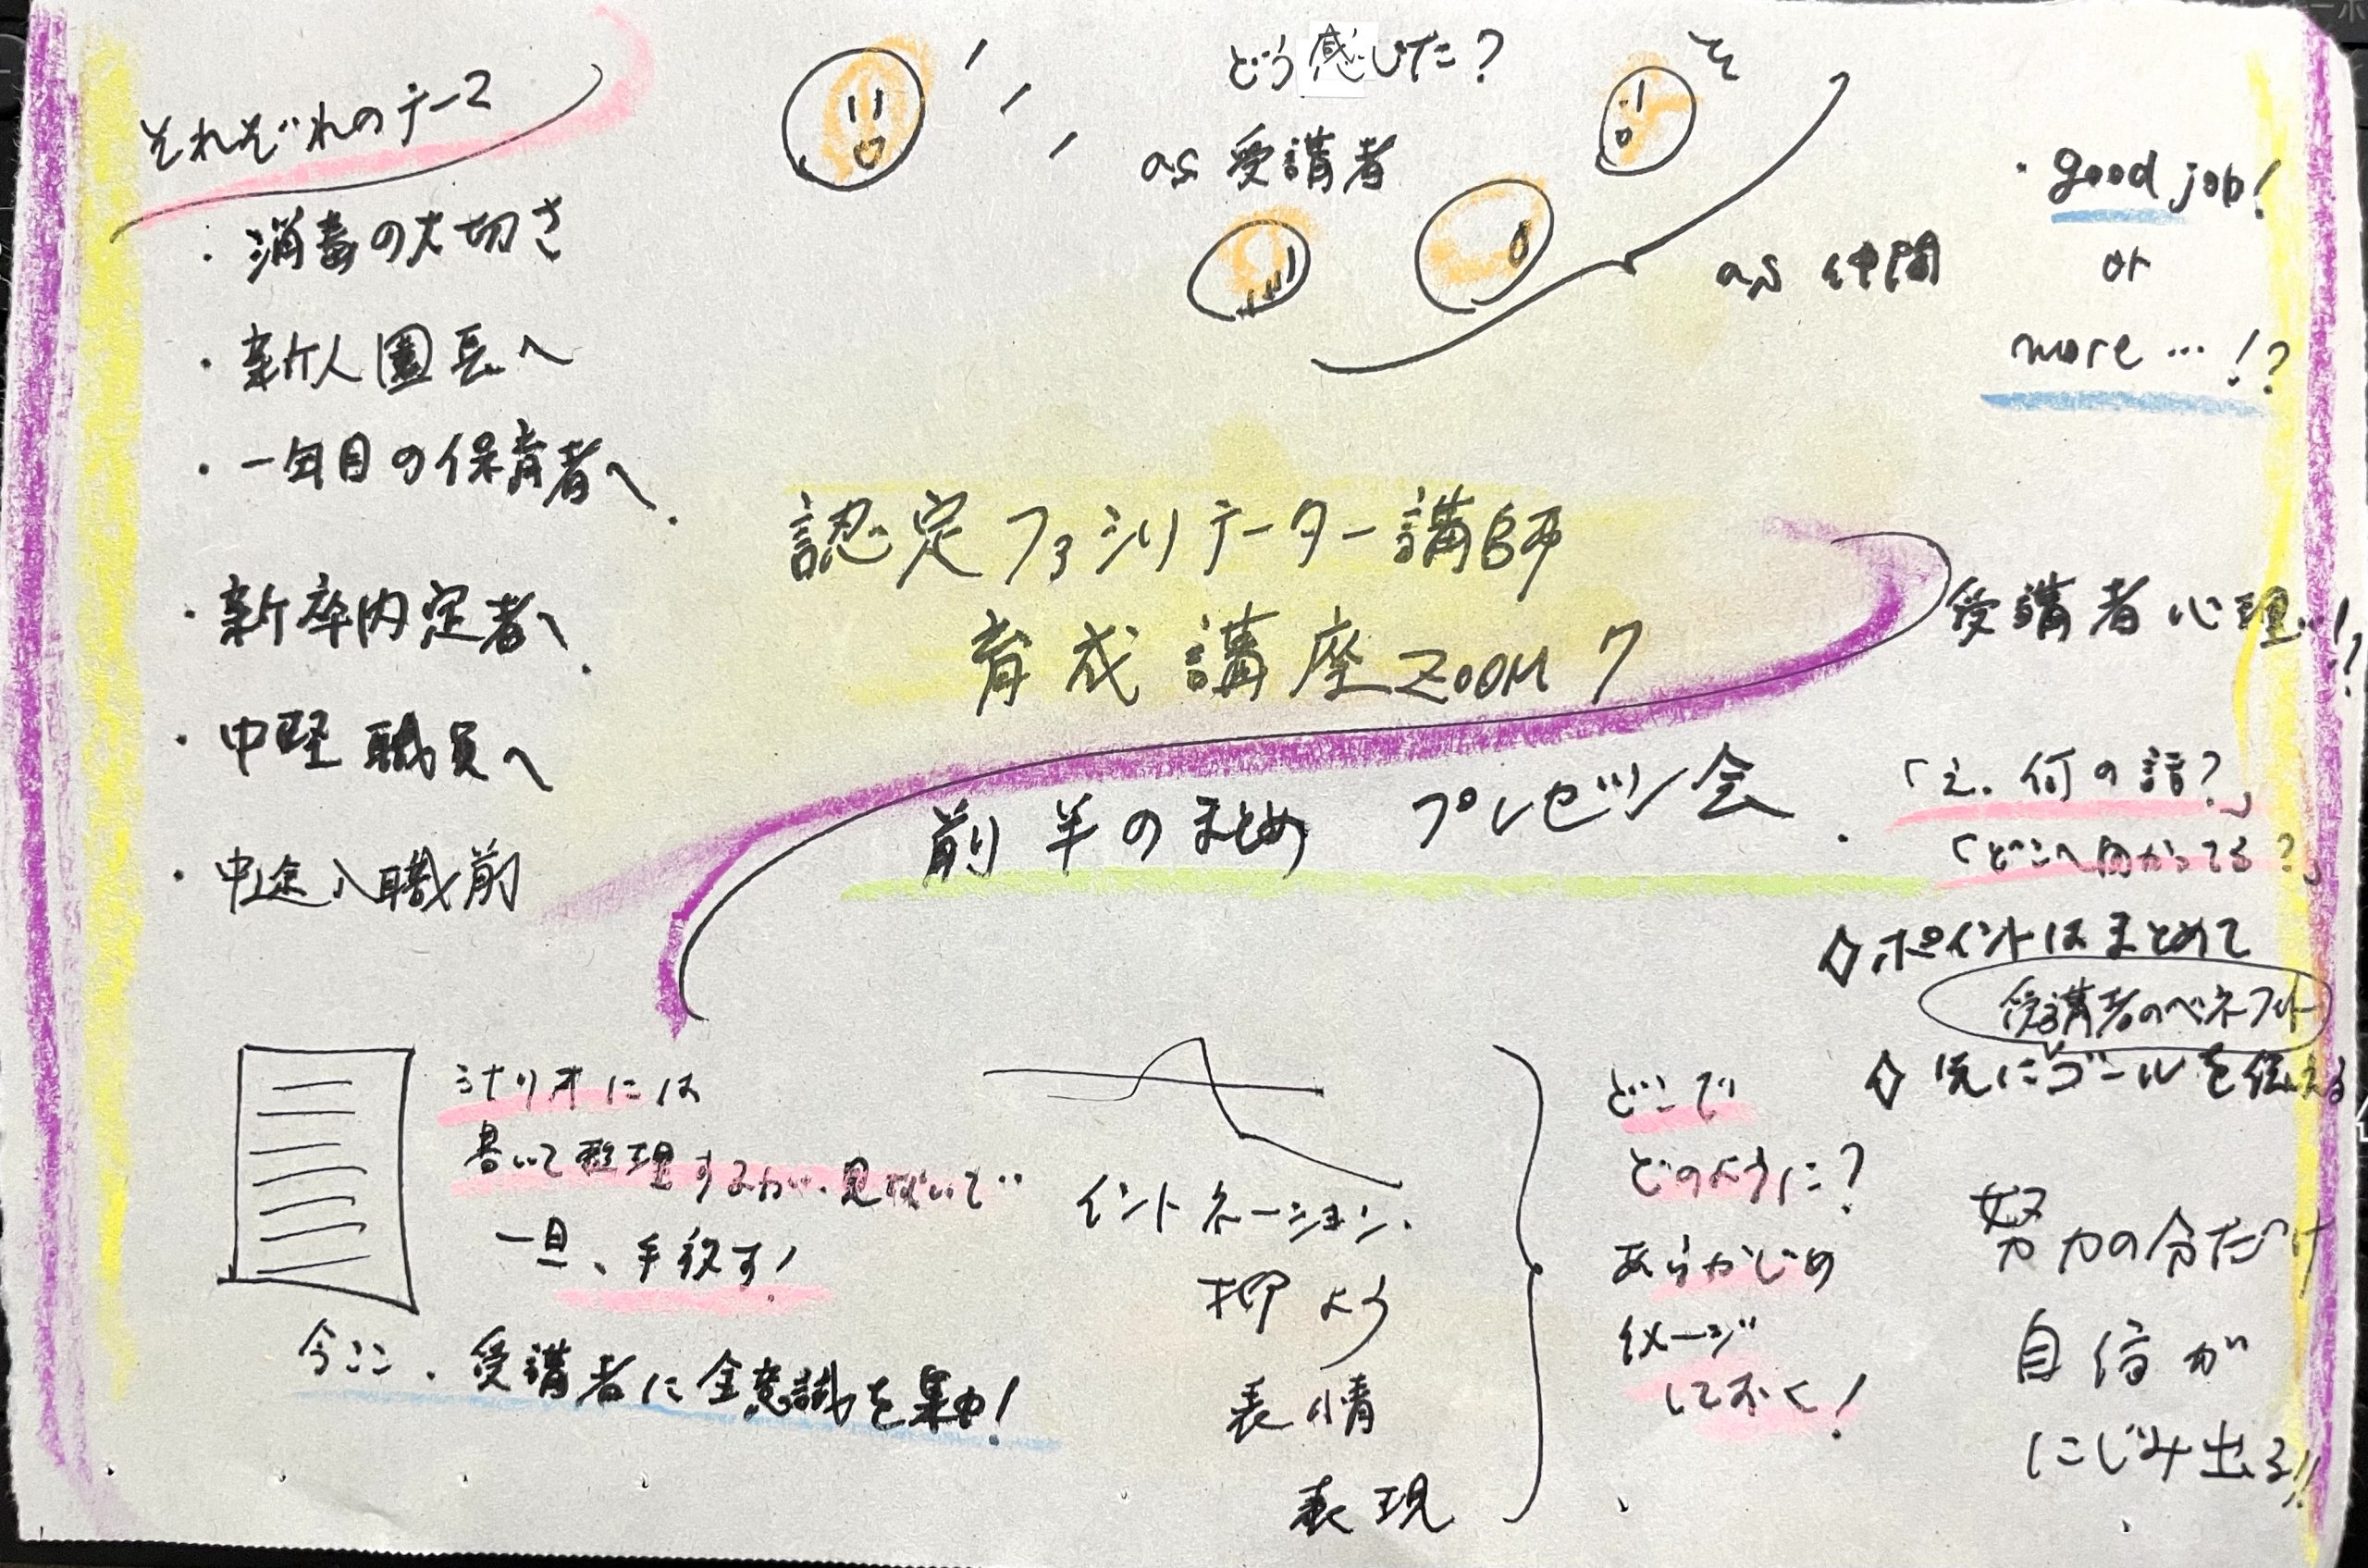 それぞれのテーマ
・消毒の大切さ
・新人園長へ
・一年目の保育者へ.
・新卒内定者へ.
・中堅職員へ
・中途入職前
どう感じた?
as 受講者
as 仲間
・good job!
or
more…!?
認定ファシリテーター講師
育成講座ZOOM 7
前半のまとめ プレゼン会.
受講者心理!!?
「え、何の話?」
「どこへ向かってる?」
◇ポイントはまとめて
受講者のベネフィット
◇先にゴールを伝える
シナリオには
書いて整理するが、見ないで…
一旦、手放す!
今ここ、受講者に全意識を集中!
イントネーション、
抑よう
表情
表現
どこで
どのように?
あらかじめ
イメージ
しておく!
努力の分だけ
自信が
にじみ出る!!